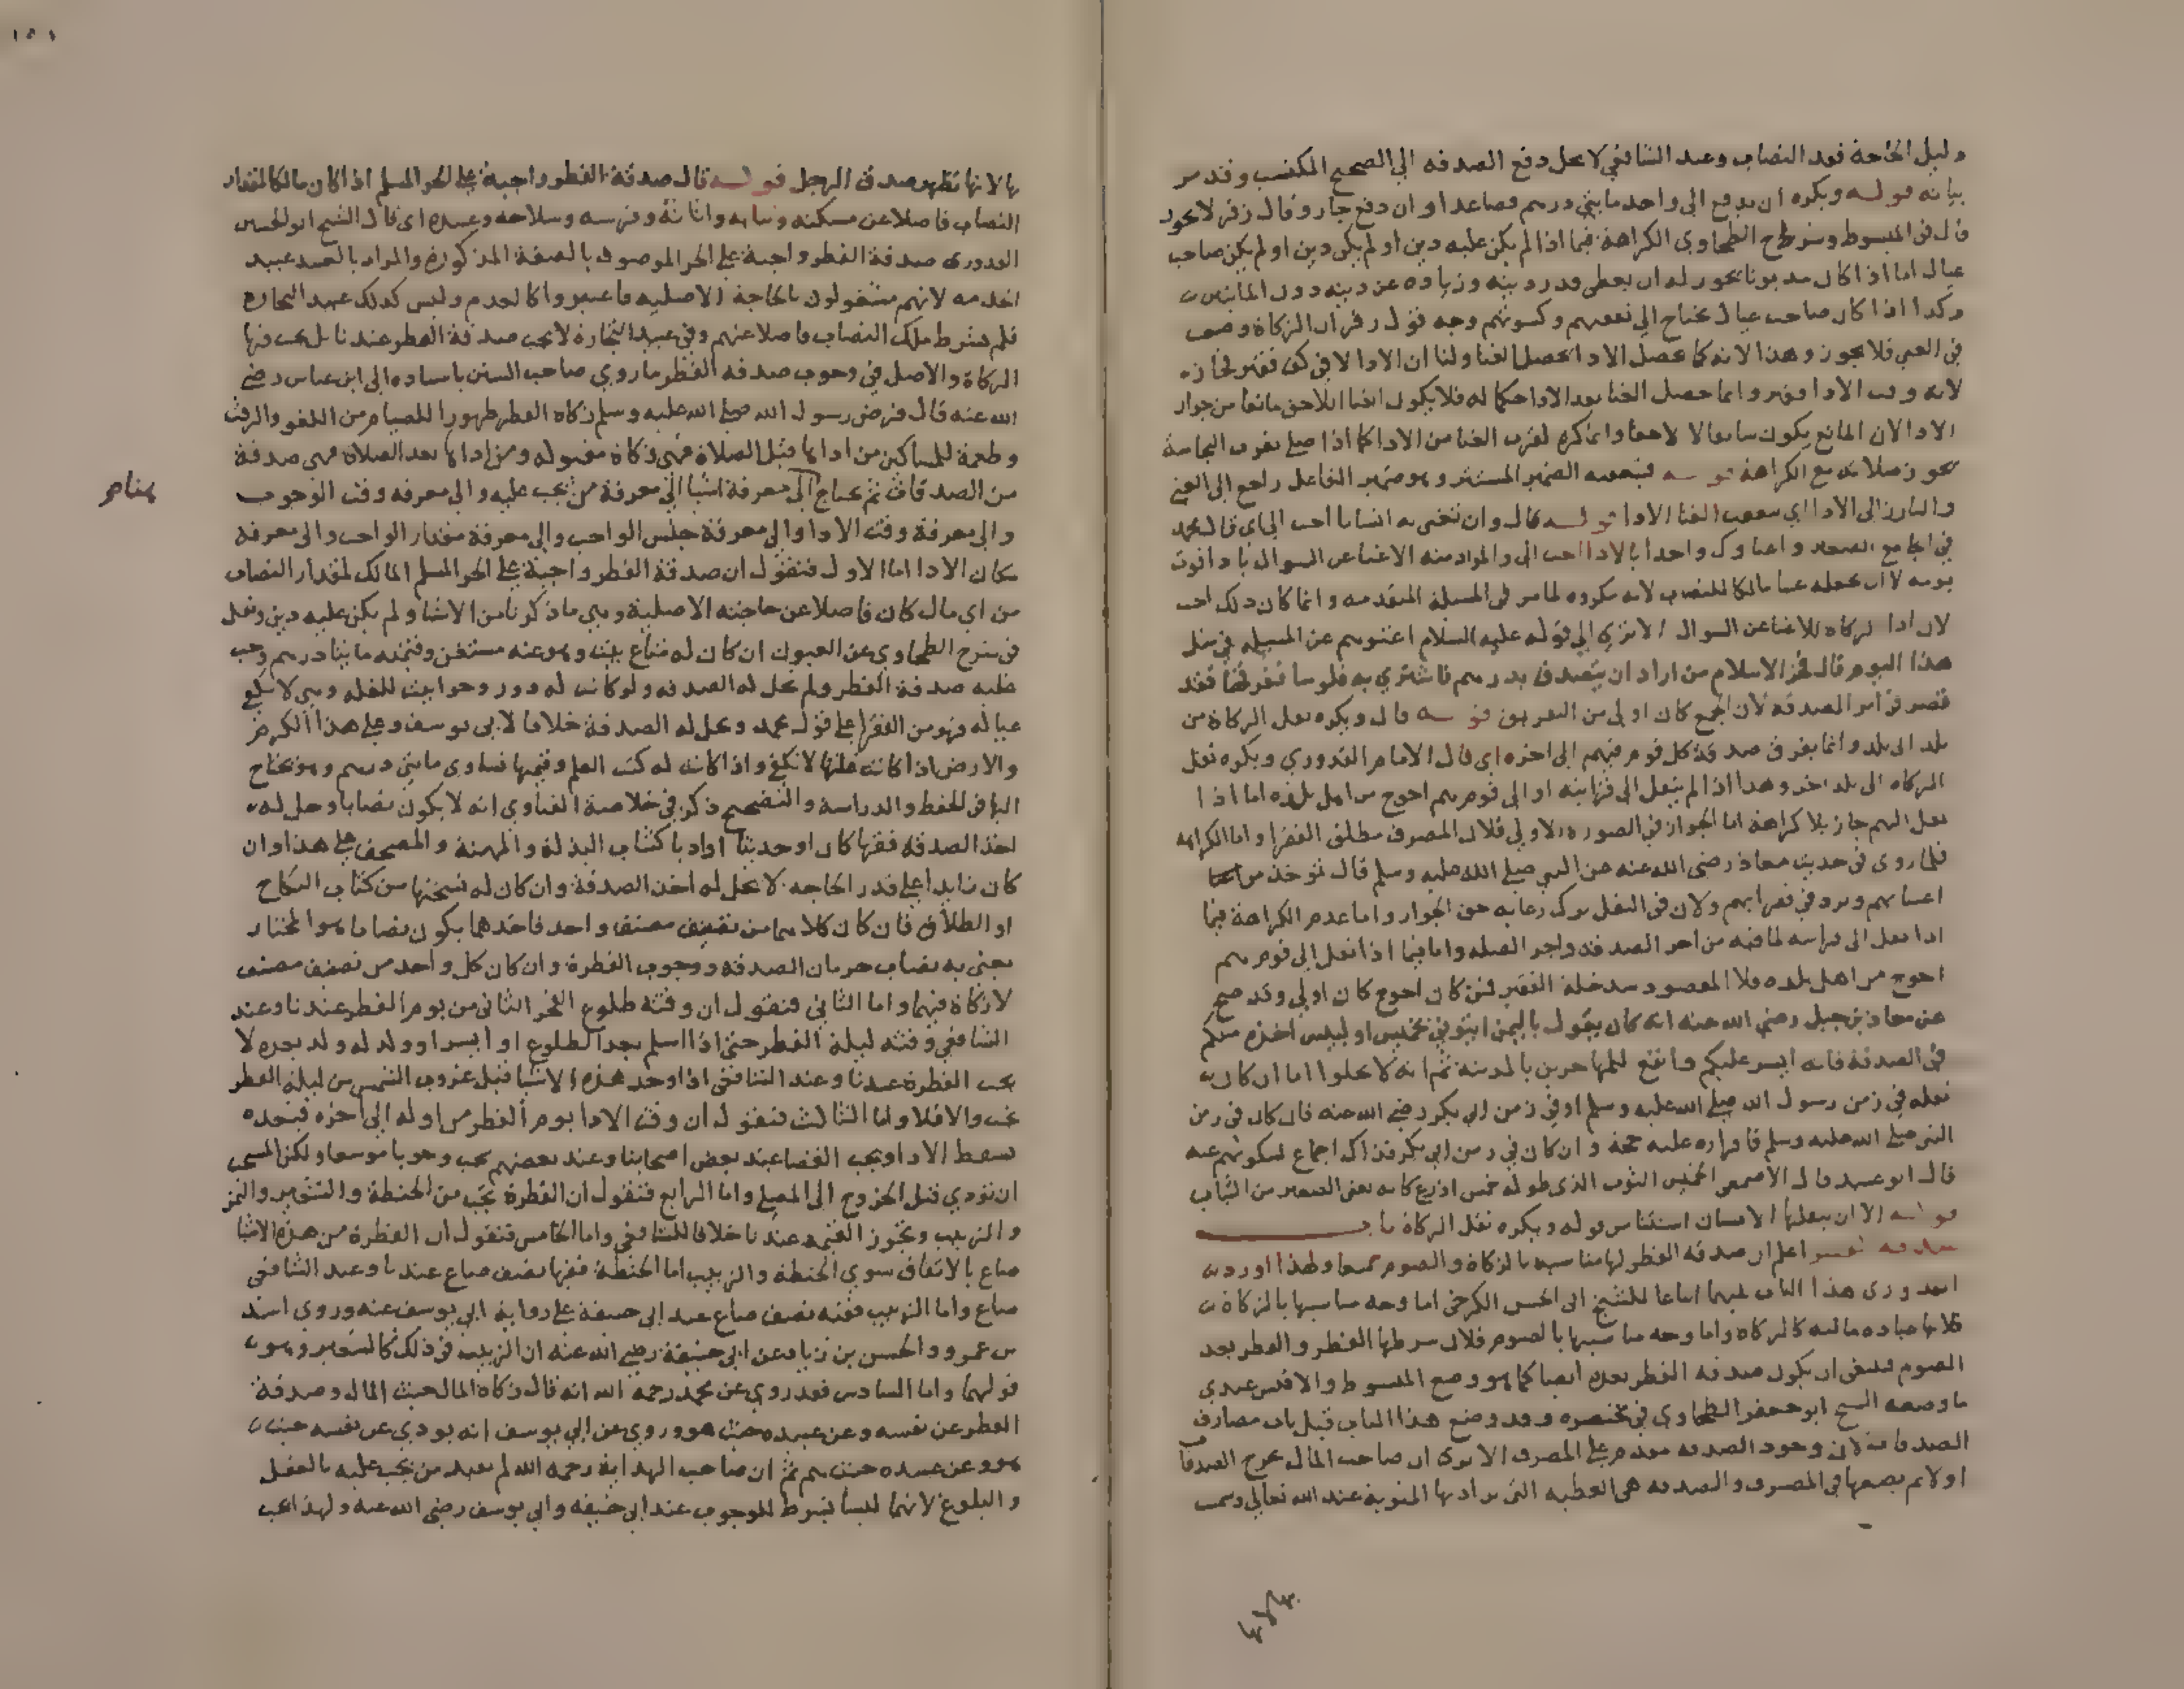 دليل الحاجة فقد النصاب وعند الشافعي لا يحل دفع الصدقه الي الصحيح المكتسب وقد مر
بيانه قوله ويكره ان يدفع الي واحد مايتي درهم فصاعدا وان دفع جاز وقال زفر لا يجوز
قال في المبسوط وشرح الطحاوي الكراهة فيما اذا لم يكن عليه دين او لم يكن دين او لم يكن صاحب
عيال اما اذا كان مديونا يجوز له ان يعطي قدر دينه وزيادة عن دينه دون المايتين
وكذا اذا كان صاحب عيال يحتاج الي نفقتهم وكسوتهم وجه قول زفر ان الزكاة وضعت
في الغني فلا يجوز وهذا لانه كما حصل الادا حصل الغنا ولنا ان الادا لاقى كف فقير فجاز
لانه وقت الادا فقير وانما حصل الغنا بعد الادا حكما له فلا يكون الغنا اللاحق مانعا من جواز
الادا لان المانع يكون سابقا لا لاحقا وانما كره لقرب الغنا من الادا كما اذا صلي بقرب النجاسة
تجوز صلاته مع الكراهة قوله فيتعقبه الضمير المستتر وهو ضمير الفاعل راجع الي الغني
والبارز الي الادا اي يتعقب الغنا الادا قوله قال وان تغني به انسانا احب الي اي قال محمد
في الجامع الصغير واغناوك واحدا بالادا احب الي والمراد منه الاغنا عن السوال بادا قوت
يومه لا ان يجعله غنيا مالكا للنصاب لانه مكروه لما مر في المسيلة المتقدمه وانما كان ذلك احب
لان ادا الزكاة للاغنا عن السوال الا تري الي قوله عليه السلام اغنوهم عن المسيله في مثل
هذا اليوم قال فخر الاسلام من اراد ان يتصدق بدرهم فاشتري به فلوسا ففرقها فقد
قصر في امر الصدقة لان الجمع كان اولي من التفريق قوله قال ويكره نقل الزكاة من
بلد الي بلد وانما يفرق صدقة كل قوم فيهم الي اخره اي قال الامام القدوري ويكره نقل
الزكاة الي بلد اخر وهذا اذا لم ينقل الي قرابته او الي قوم هم احوج من اهل بلده اما اذا
نقل اليهم جاز بلا كراهة اما الجواز في الصورة الاولي فلان المصرف مطلق الفقرا واما الكراهه
فلما روي في حديث معاذ رضي الله عنه عن النبي صلي الله عليه وسلم قال توخذ من
اغنيايهم وترد في فقرايهم ولان في النقل ترك رعاية حق الجوار واما عدم الكراهة فيما
اذا نقل الي قرابته لما فيه من اجر الصدقه واجر الصله واما فيما اذا نقل الي قوم هم
احوج من اهل بلده فلان المقصود سد خلة الفقير فمن كان احوج كان اولي وقد صح
عن معاذ بن جبل رضي الله عنه انه كان يقول باليمن ايتوني بخميس او لبيس اخذه منكم
في الصدقة فانه ايسر عليكم وانفع للمهاجرين بالمدينة ثم انه لا يخلوا اما ان كان
نقله في زمن رسول الله صلي الله عليه وسلم او في زمن ابي بكر رضي الله عنه فان كان في زمن
النبي صلي الله عليه وسلم فاقراره عليه حجة وان كان في زمن ابي بكر فذاك اجماع لسكوتهم عنه
قال ابو عبيد قال الاصمعي الخميس الثوب الذي طوله خمس اذرع كانه يعني الصغير من الثياب
قوله الا ان ينقلها الانسان استثنا من قوله ويكره نقل الزكاة باب
صدقه الفطر اعلم ان صدقه الفطر لها مناسبه بالزكاة والصوم جميعا ولهذا اورد
القدوري هذا الباب بينهما اتباعا للشيخ ابي الحسن الكرخي اما وجه مناسبتها بالزكاة
فلانها عباده ماليه كالزكاه واما وجه مناسبتها بالصوم فلان شرطها الفطر والفطر بعد
الصوم فينبغي ان يكون صدقه الفطر بعده ايضا كما هو وضع المبسوط والاقيس عندي
ما وضعه الشيخ ابو جعفر الطحاوي في مختصره وقد وضع هذا الباب قبل باب مصارف
الصدقات لان وجود الصدقه مقدم علي المصرف الا تري ان صاحب المال يخرج الصدقات
اولا ثم يضعها في المصرف والصدقه هي العطيه التي يراد بها المثوبة عند الله تعالي وسميت
١٥١
بها لانها تظهر صدق الرجل قوله قال صدقة الفطر واجبة علي الحر المسلم اذا كان مالكا لمقدار
النصاب فاضلا عن مسكنه وثيابه واثاثه وفرسه وسلاحه وعبيده اي قال الشيخ ابو الحسين
القدوري صدقة الفطر واجبة علي الحر الموصوف بالصفة المذكورة والمراد بالعبيد عبيد
الخدمه لانهم مشغولون بالحاجة الاصليه فاعتبروا كالعدم وليس كذلك عبيد التجارة
فلم يشترط ملك النصاب فاضلا عنهم وفي عبيد التجارة لا يجب صدقة الفطر عندنا بل يجب فيها
الزكاة والاصل في وجوب صدقه الفطر ما روي صاحب السنن باسناده الي ابن عباس رضي
الله عنه قال فرض رسول الله صلي الله عليه وسلم زكاة الفطر طهورا للصيام من اللغو والرفث
وطعمة للمساكين من اداها قبل الصلاة فهي زكاة مقبوله ومن اداها بعد الصلاة فهي صدقة
من الصدقات ثم يحتاج الي معرفة اشيا الي معرفة من تجب عليه والي معرفه وقت الوجوب
والي معرفة وقت الادا والي معرفة جنس الواجب والي معرفة مقدار الواجب والي معرفة
مكان الادا اما الاول فنقول ان صدقة الفطر واجبة علي الحر المسلم المالك لمقدار النصاب
من اي مال كان فاضلا عن حاجته الاصلية وهي ما ذكرنا من الاشيا ولم يكن عليه دين ونقل
في شرح الطحاوي عن العيون ان كان له متاع بيت وهو عنه مستغن وقيمته مايتا درهم وجب
عليه صدقة الفطر ولم تحل له الصدقه ولو كانت له دور وحوانيت للغله وهي لا تكفي
عياله فهو من الفقرا علي قول محمد وتحل له الصدقة خلافا لابي يوسف وعلي هذا الكرم
والارض اذا كانت غلتها لا تكفي واذا كانت له كتب العلم وقيمتها تساوي مايتي درهم وهو يحتاج
اليها في الحفظ والدراسة والتصحيح ذكر في خلاصة الفتاوي انه لا يكون نصابا وحل له
اخذ الصدقه فقها كان او حديثا او ادبا كثياب البذلة والمهنة والمصحف علي هذا وان
كان زايدا علي قدر الحاجه لا يحل له اخذ الصدقة وان كان له نسختها من كتاب النكاح
او الطلاق فان كان كلاهما من تصنيف مصنف واحد فاحدهما يكون نصابا هو المختار
يعني به نصاب حرمان الصدقه ووجوب الفطرة وان كان كل واحد من تصنيف مصنف
لا زكاة فيهما واما الثاني فنقول ان وقته طلوع الفجر الثاني من يوم الفطر عندنا وعند
الشافعي وقته ليلة الفطر حتي اذا اسلم بعد الطلوع او ايسر او ولد له ولد بعده لا
يجب الفطرة عندنا وعند الشافعي اذا وجد هذه الاشيا قبل غروب الشمس من ليلة الفطر
يجب والا فلا واما الثالث فنقول ان وقت الادا يوم الفطر من اوله الي اخره فبعده
يسقط الادا ويجب القضا عند بعض اصحابنا وعند بعضهم يجب وجوبا موسعا ولكن المستحب
ان تودي قبل الخروج الي المصلي واما الرابع فنقول ان الفطرة تجب من الحنطة والشعير والتمر
والزبيب وتجوز القيمه عندنا خلافا للشافعي واما الخامس فنقول ان الفطرة من هذه الاشيا
صاع بالاتفاق سوي الحنطة والزبيب اما الحنطة ففيها نصف صاع عندنا وعند الشافعي
صاع واما الزبيب ففيه نصف صاع عند ابي حنيفة علي رواية ابي يوسف عنه وروي اسد
بن عمرو والحسن بن زياد عن ابي حنيفة رضي الله عنه ان الزبيب في ذلك كالشعير وهو
قولهما واما السادس فقد روي عن محمد رحمه الله انه قال زكاة المال حيث المال وصدقة
الفطر عن نفسه وعن عبيده حيث هو وروي عن ابي يوسف انه يودي عن نفسه حيث
هو وعن عبيده حيث هم ثم ان صاحب الهداية رحمه الله لم يقيد من تجب عليه بالعقل
والبلوغ لانهما ليسا بشرط للوجوب عند ابي حنيفه وابي يوسف رضي الله عنه ولهذا يجب